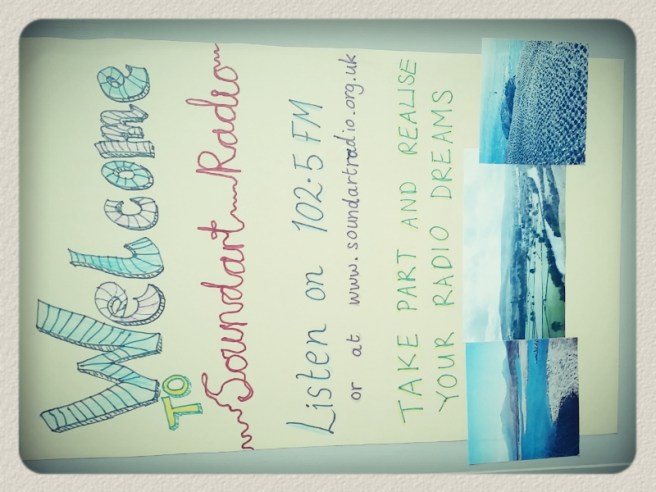 Welcome
TO
Soundart Radio
Listen on 102.5 FM
or at www.soundartradio.org.uk
TAKE PART AND REALISE
YOUR RADIO DREAMS